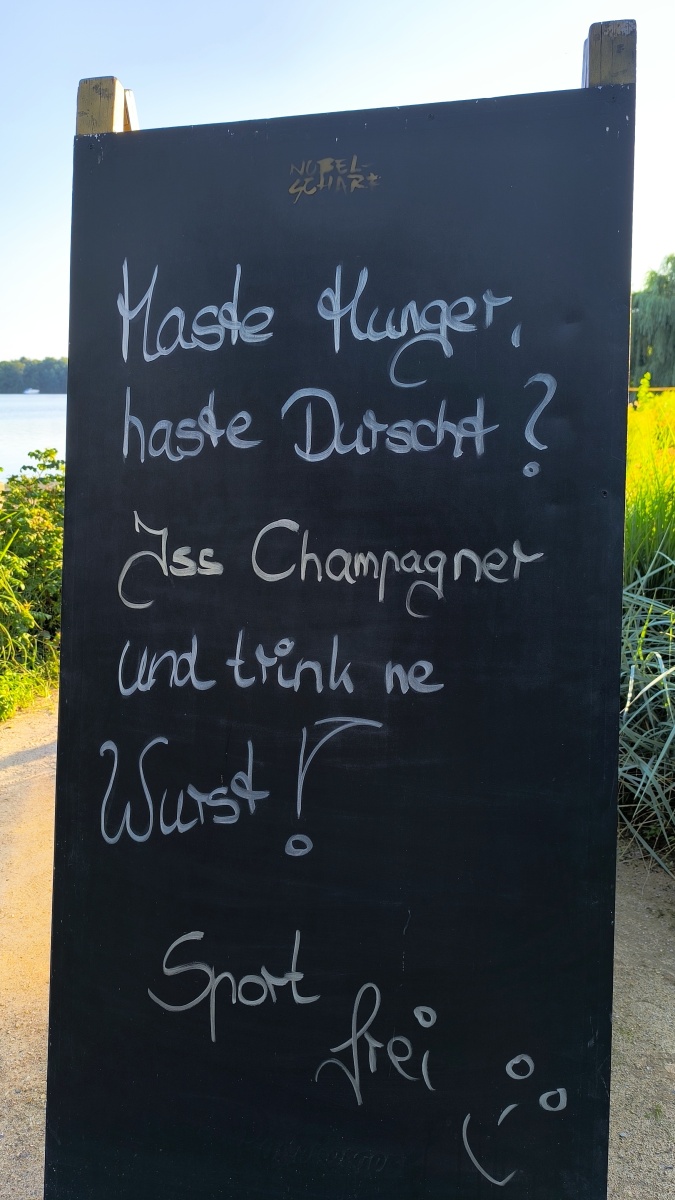 NOBEL-
SCHART
Haste Hunger,
haste Durscht?
Iss Champagner
und trink ne
Wurst!
Sport
frei